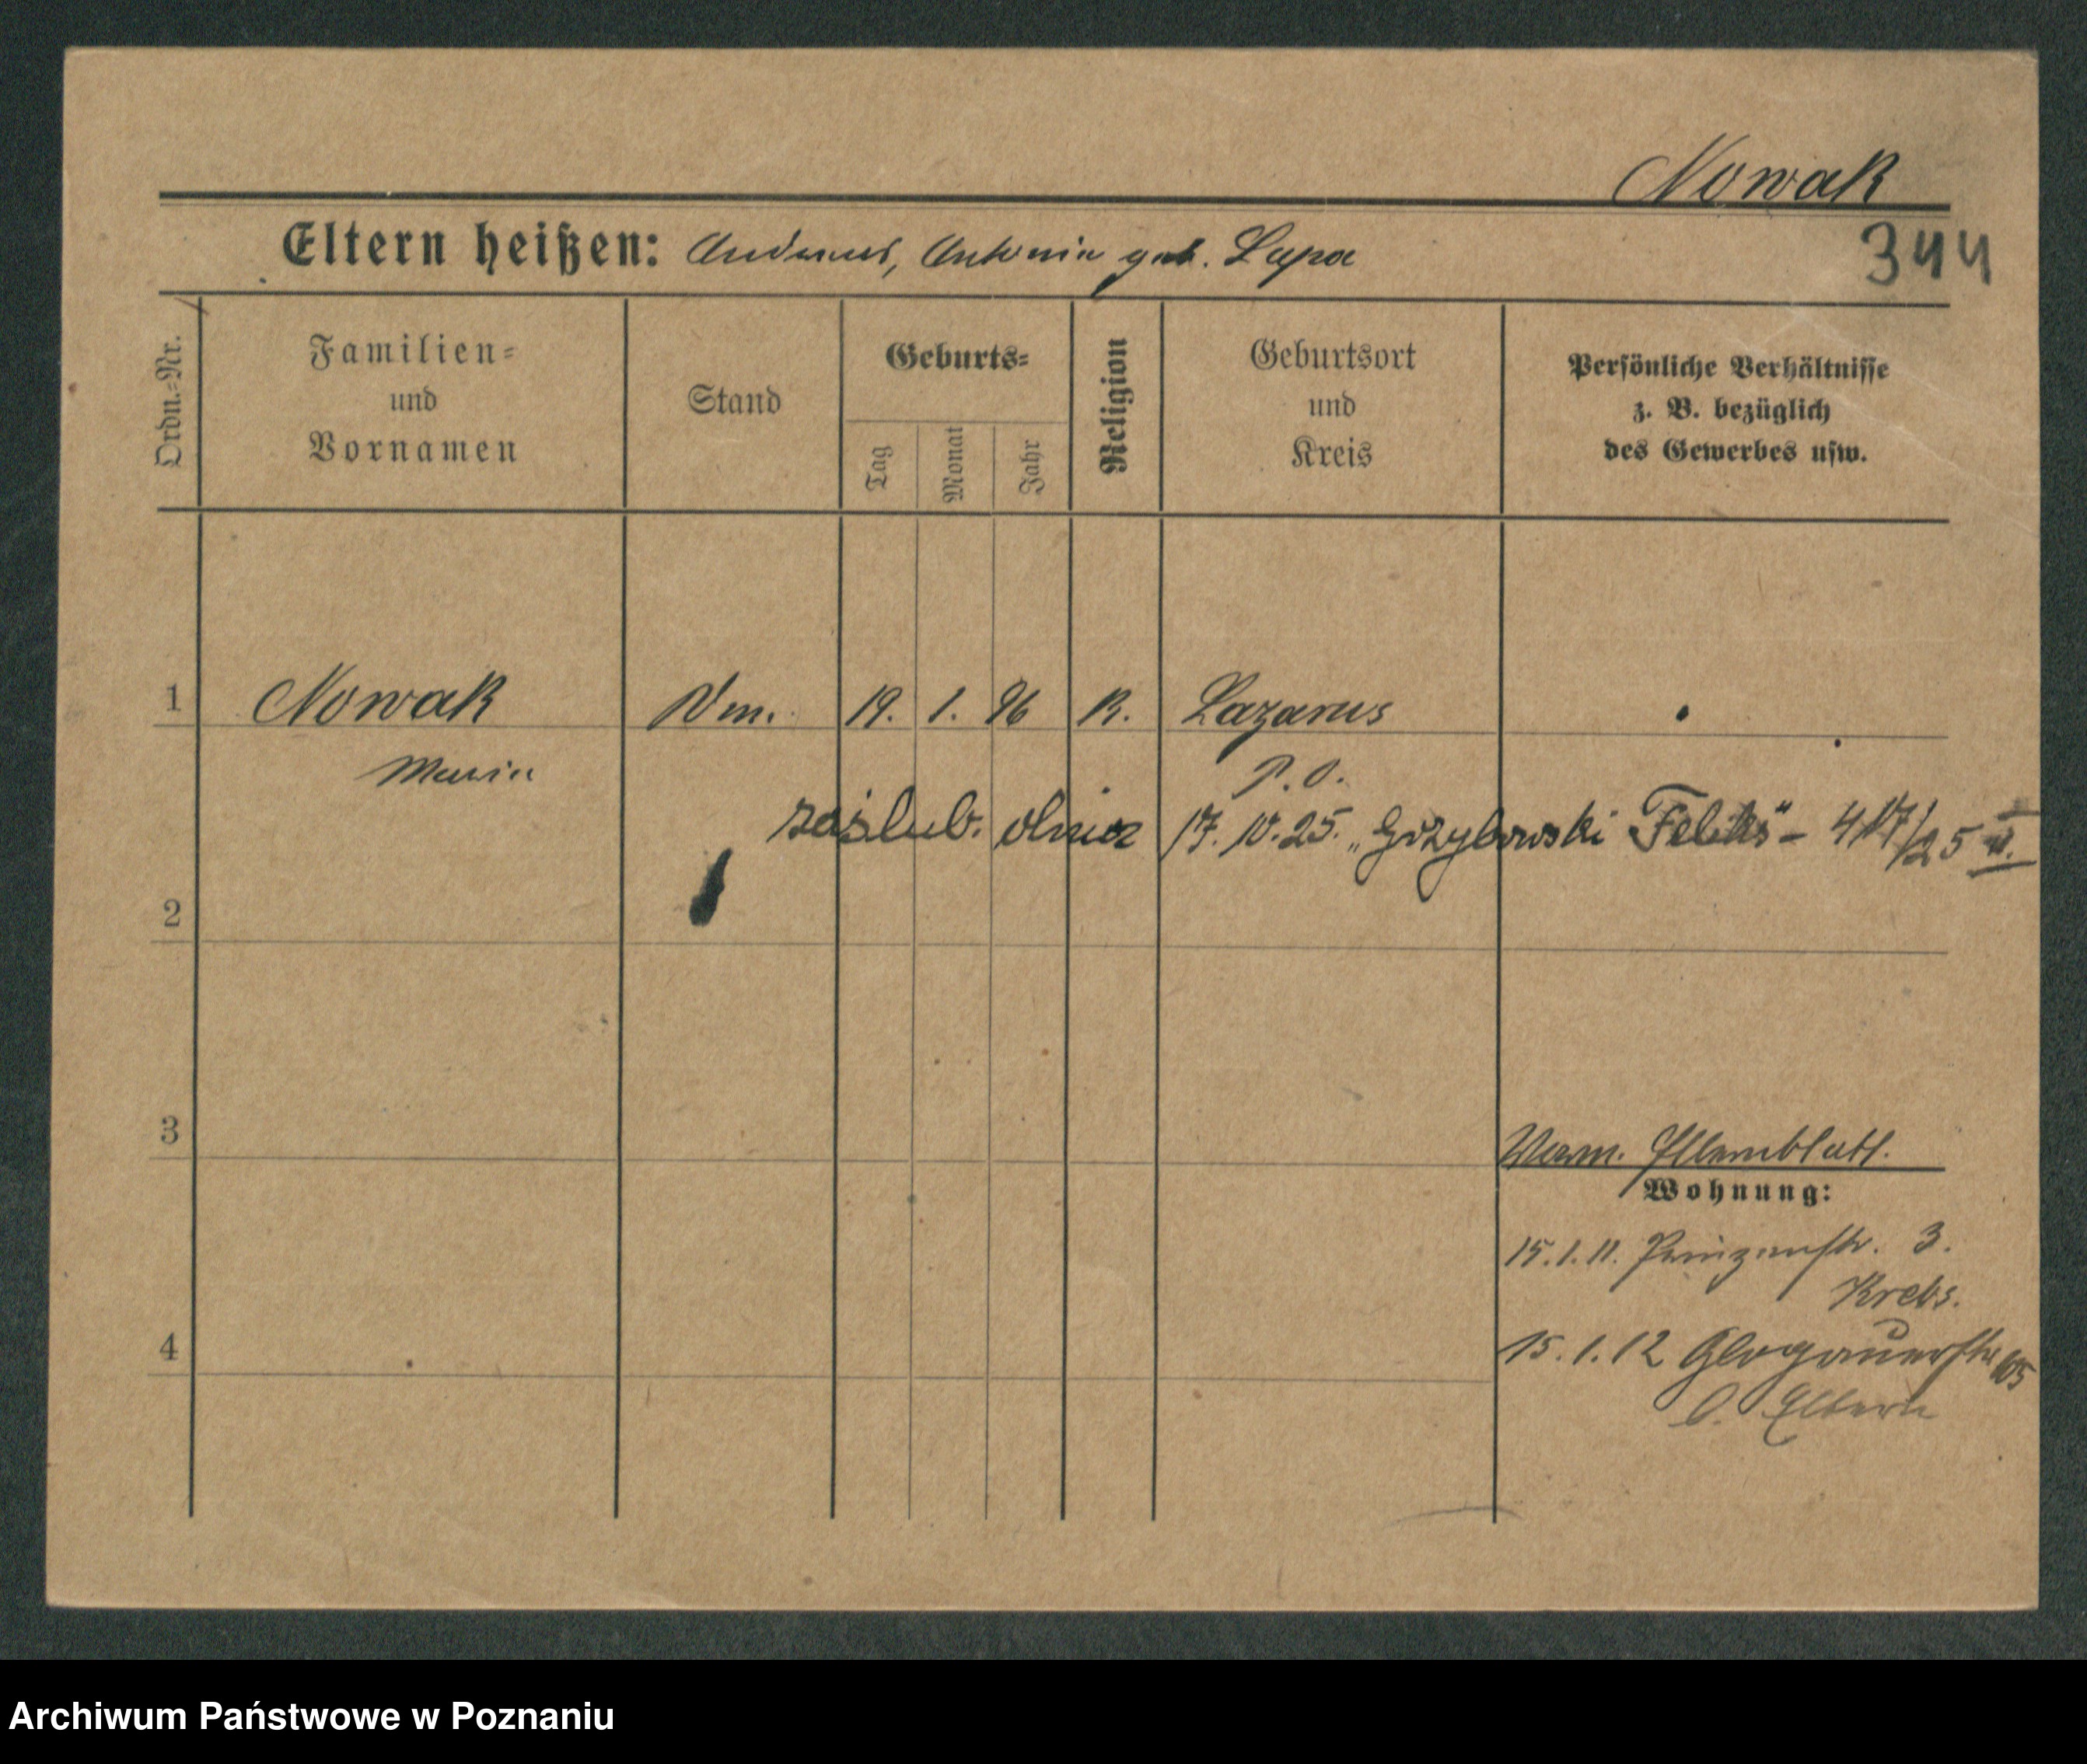 Nowak
Eltern heißen: Andreas, Antonia geb. Lupa
344
Ordn.=Nr.
Familien=
und
Vornamen
Stand
Geburts=
Tag
Monat
Jahr
Religion
Geburtsort
und
Kreis
Persönliche Verhältnisse
z. B. bezüglich
des Gewerbes usw.
1 Nowak 19. 1. 96 K. Lazarus
Maria
P. O.
zaślub. dnia 17. 10. 25. „Grzybowski Feliks" - 417/25 II.
2
3
Verm. Elternblatt.
Wohnung:
15.1.11. Prinzenstr. 3.
Krebs.
4
15.1.12 Glogauerstr 105
b. Eltern
Archiwum Państwowe w Poznaniu